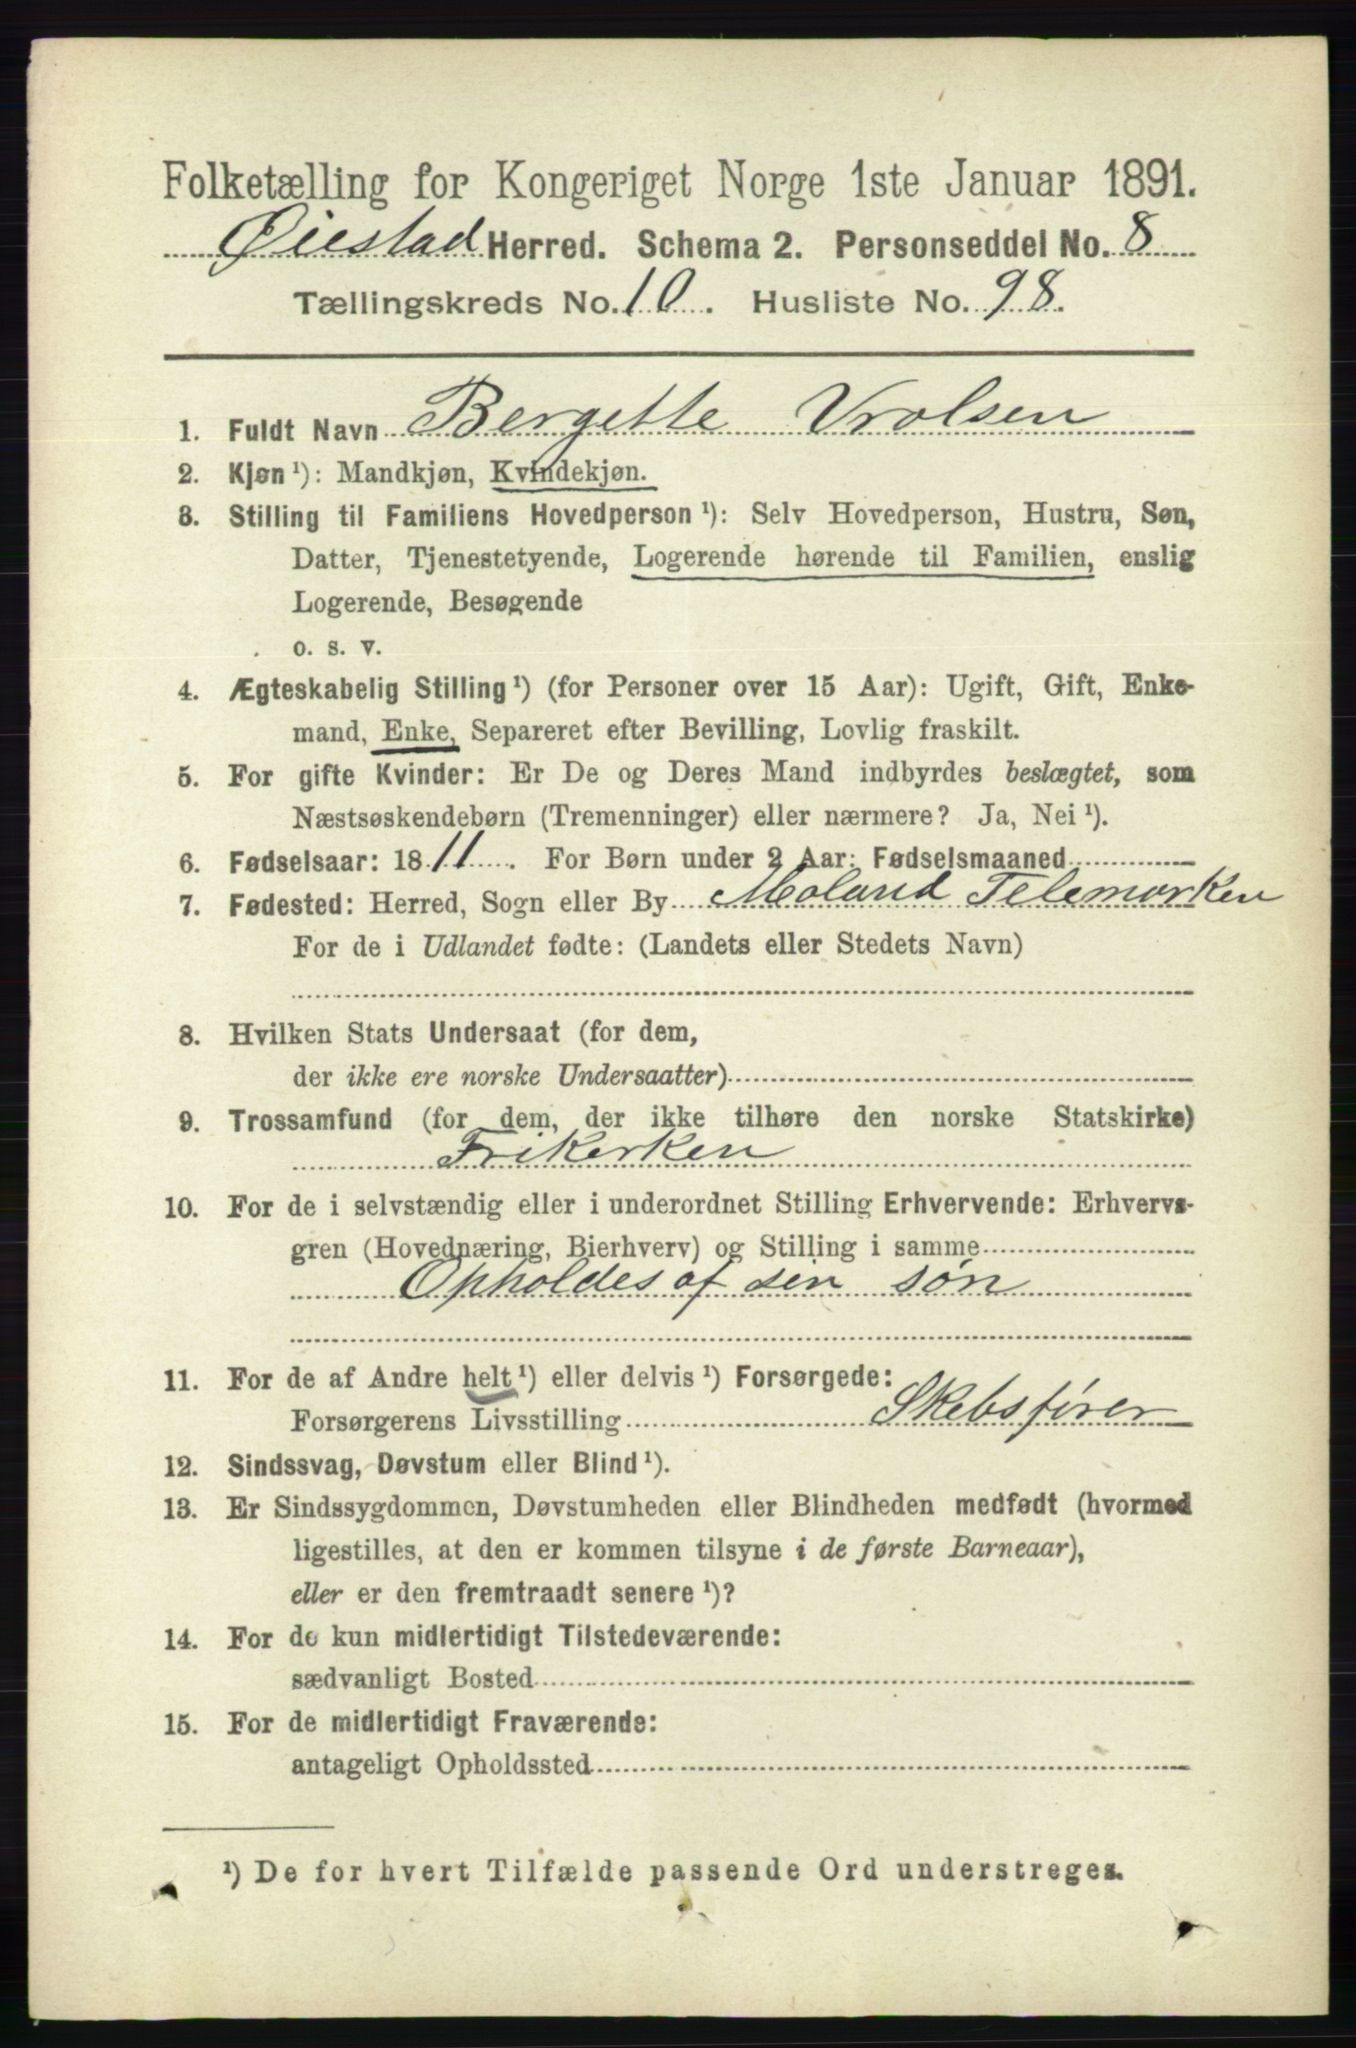 Folketælling for Kongeriget Norge 1ste Januar 1891.
Øiestad Herred. Schema 2. Personseddel No. 8
Tællingskreds No. 10. Husliste No. 98.
1. Fuldt Navn Bergette Vrolsen
2. Kjøn ¹): Mandkjøn, Kvindekjøn.
3. Stilling til Familiens Hovedperson ¹): Selv Hovedperson, Hustru, Søn,
Datter, Tjenestetyende, Logerende hørende til Familien, enslig
Logerende, Besøgende
o. s. v.
4. Ægteskabelig Stilling ¹) (for Personer over 15 Aar): Ugift, Gift, Enke-
mand, Enke, Separeret efter Bevilling, Lovlig fraskilt.
5. For gifte Kvinder: Er De og Deres Mand indbyrdes beslægtet, som
Næstsøskendebørn (Tremenninger) eller nærmere? Ja, Nei ¹).
6. Fødselsaar: 1811. For Børn under 2 Aar: Fødselsmaaned
7. Fødested: Herred, Sogn eller By Moland Telemarken
For de i Udlandet fødte: (Landets eller Stedets Navn)
8. Hvilken Stats Undersaat (for dem,
der ikke ere norske Undersaatter)
9. Trossamfund (for dem, der ikke tilhøre den norske Statskirke)
Frikerken
10. For de i selvstændig eller i underordnet Stilling Erhvervende: Erhvervs-
gren (Hovednæring, Bierhverv) og Stilling i samme
Opholdes af sin søn
11. For de af Andre helt ¹) eller delvis ¹) Forsørgede:
Forsørgerens Livsstilling Skebsfører
12. Sindssvag, Døvstum eller Blind ¹).
13. Er Sindssygdommen, Døvstumheden eller Blindheden medfødt (hvormed
ligestilles, at den er kommen tilsyne i de første Barneaar),
eller er den fremtraadt senere ¹)?
14. For de kun midlertidigt Tilstedeværende:
sædvanligt Bosted
15. For de midlertidigt Fraværende:
antageligt Opholdssted
¹) De for hvert Tilfælde passende Ord understreges.